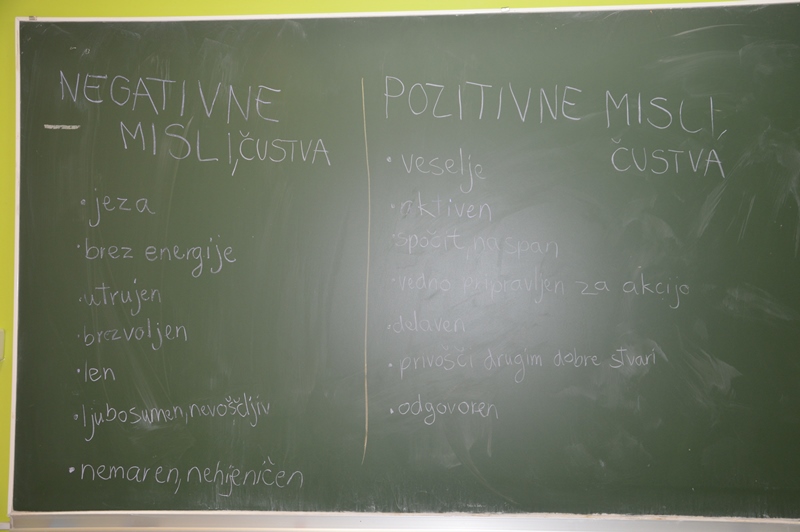 NEGATIVNE
MISLI, ČUSTVA
• jeza
• brez energije
• utrujen
• brezvoljen
• len
• ljubosumen, nevoščljiv
• nemaren, nehigeničen
POZITIVNE MISLI,
ČUSTVA
• veselje
• aktiven
• spočit, naspan
• vedno pripravljen za akcijo
• delaven
• privošči drugim dobre stvari
• odgovoren